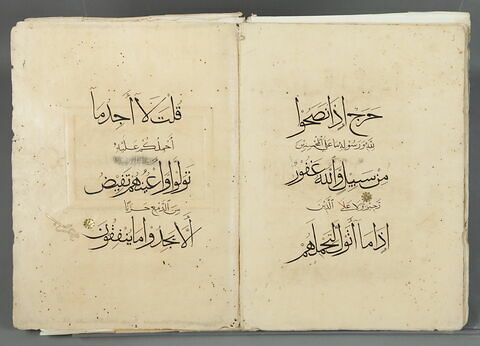 حرج إذا نصحوا
لله ورسوله ما على المحسنين
من سبيل والله غفور
رحيم ولا على الذين
إذا ما أتوك لتحملهم
قلت لا أجد ما
أحملكم عليه
تولوا وأعينهم تفيض
من الدمع حزنا
ألا يجدوا ما ينفقون